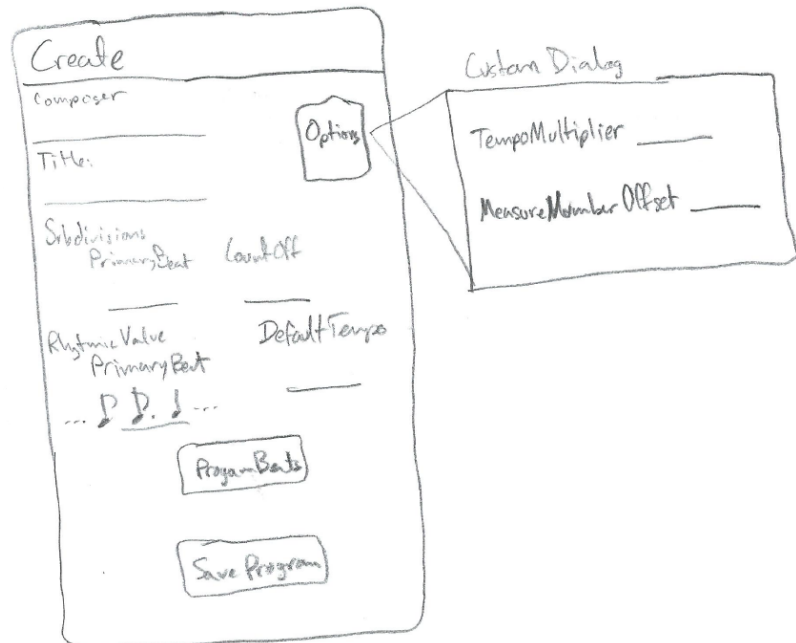 Create
Composer
Options
Title:
Subdivisions
PrimaryBeat
CountOff
RhytmicValue
PrimaryBeat
DefaultTempo
... ...
ProgamBeats
Save Program
Custom Dialog
TempoMultiplier
MeasureNumberOffset